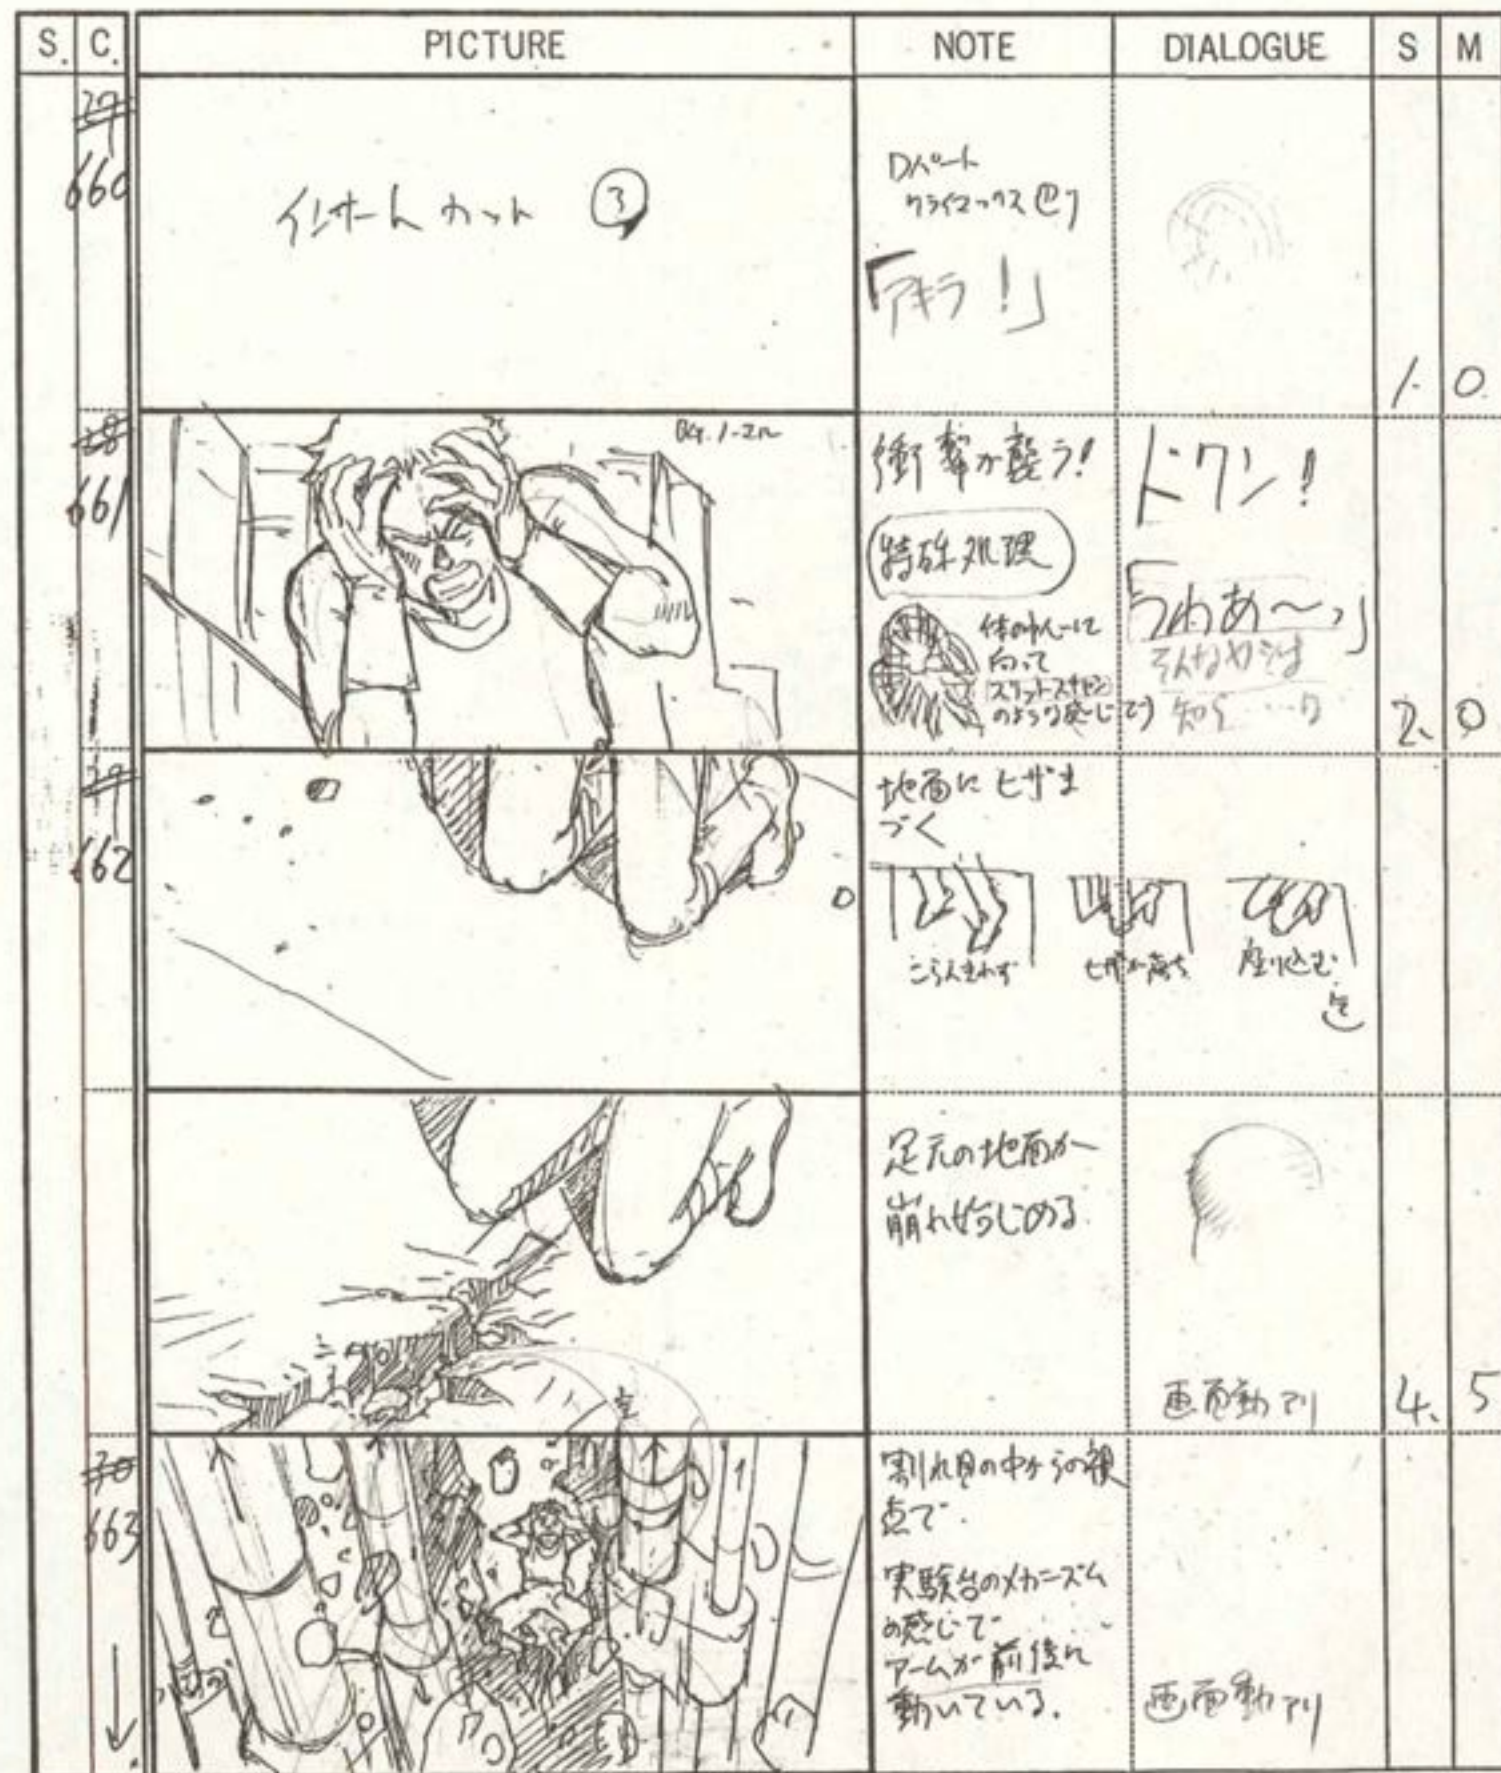 S. C. PICTURE NOTE DIALOGUE S M
27
660
インサートカット ③
Dパート
クライマックス
「アキラ!」
1. 0
28
661
衝撃が襲う!
特殊処理
向って
スリットスキャン
のような感じで
ドクン!
「うわあ〜っ」
2. 0
29
662
地面にヒザま
づく
ヒザが落ち
座り込む
足元の地面が
崩れはじめる
画面動アリ
4. 5
30
663
割れ目の中からの視
点で.
実験台のメカニズム
の感じで
アームが前後に
動いている.
画面動アリ